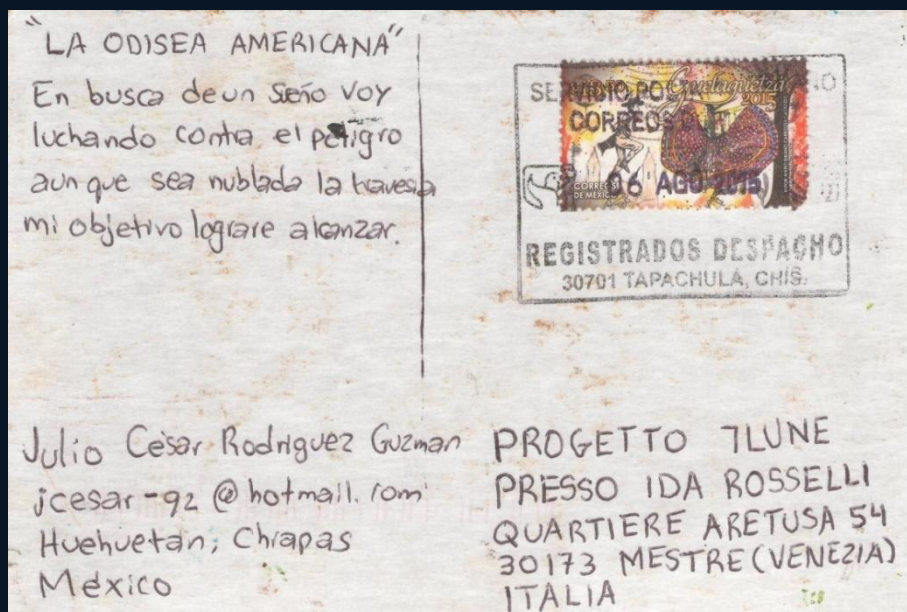 "LA ODISEA AMERICANA"
En busca de un sueño voy
luchando contra el peligro
aun que sea nublada la travesia
mi objetivo lograre alcanzar.
Guelaguetza
2015
CORREOS
CORREOS
DE MEXICO
06 AGO 2015
REGISTRADOS DESPACHO
30701 TAPACHULA, CHIS.
Julio César Rodriguez Guzman
jcesar-92@hotmail.com
Huehuetán, Chiapas
México
PROGETTO 7LUNE
PRESSO IDA ROSSELLI
QUARTIERE ARETUSA 54
30173 MESTRE (VENEZIA)
ITALIA